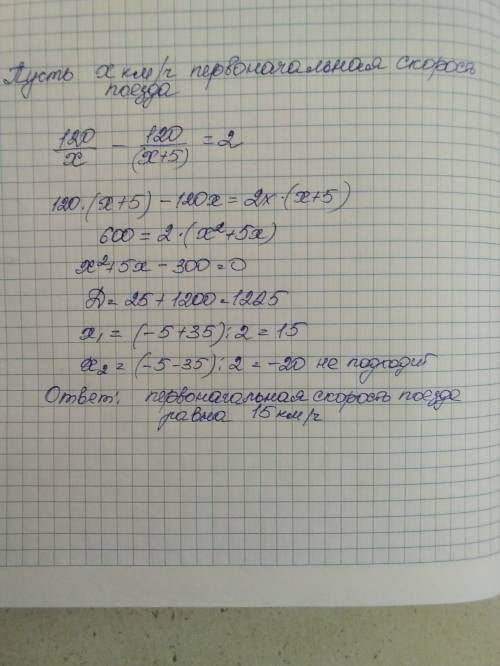 Пусть x км/ч первоначальная скорость
поезда
120/x - 120/(x+5) = 2
120·(x+5) - 120x = 2x·(x+5)
600 = 2·(x²+5x)
x²+5x - 300 = 0
Д = 25 + 1200 = 1225
x₁ = (-5+35):2 = 15
x₂ = (-5-35):2 = -20 не подходит
Ответ: первоначальная скорость поезда
равна 15 км/ч